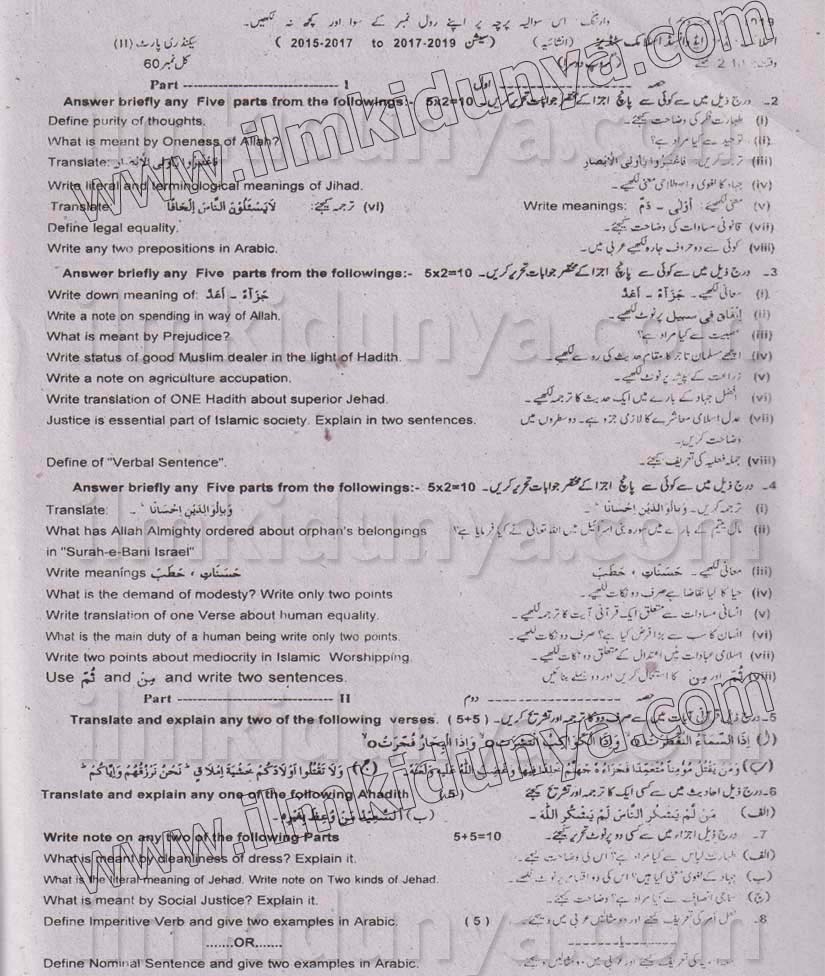 وارننگ: اس سوالیہ پرچہ پر اپنے رول نمبر کے سوا اور کچھ نہ لکھیں۔
سیکنڈری پارٹ (II) ( 2015-2017 to 2017-2019 سیشن ) (انشائیہ)
کل نمبر 60
Part ------------------------------- I اول حصہ
Answer briefly any Five parts from the followings:- 5x2=10 2۔ درج ذیل میں سے کوئی سے پانچ اجزا کے مختصر جوابات تحریر کریں۔
Define purity of thoughts. (i) طہارت فکر کی وضاحت کیجئے۔
What is meant by Oneness of Allah? (ii) توحید سے کیا مراد ہے؟
Translate: فَاعْتَبِرُوْا یٰٓاُولِی الْاَبْصَار (iii) ترجمہ کریں: فَاعْتَبِرُوْا یٰٓاُولِی الْاَبْصَارِ
Write literal and terminglogical meanings of Jihad. (iv) جہاد کا لغوی و اصطلاحی معنی لکھیے۔
Translate: لَا یَسْئَلُوْنَ النَّاسَ اِلْحَافًا (vi) ترجمہ کیجئے: Write meanings: اَوْلٰی - دَمٌ (v) معنی لکھیے:
Define legal equality. (vii) قانونی مساوات کی وضاحت کیجئے۔
Write any two prepositions in Arabic. (viii) کوئی سے دو حروف جارہ لکھیے عربی میں۔
Answer briefly any Five parts from the followings:- 5x2=10 3۔ درج ذیل میں سے کوئی سے پانچ اجزا کے مختصر جوابات تحریر کریں۔
Write down meaning of: جَزَآءُ - اَعَدَّ (i) معانی لکھیے۔ جَزَآءُ - اَعَدَّ
Write a note on spending in way of Allah. (ii) اِنفاق فی سبیل پر نوٹ لکھیے۔
What is meant by Prejudice? (iii) عصبیت سے کیا مراد ہے؟
Write status of good Muslim dealer in the light of Hadith. (iv) اچھے مسلمان تاجر کا مقام حدیث کی رو سے لکھیے۔
Write a note on agriculture accupation. (v) زراعت کے پیشہ پر نوٹ لکھیے۔
Write translation of ONE Hadith about superior Jehad. (vi) افضل جہاد کے بارے میں ایک حدیث کا ترجمہ لکھیے۔
Justice is essential part of Islamic society. Explain in two sentences. (vii) عدل اسلامی معاشرے کا لازمی جزو ہے۔ دو سطروں میں
وضاحت کریں۔
Define of "Verbal Sentence". (viii) جملہ فعلیہ کی تعریف کیجئے۔
Answer briefly any Five parts from the followings:- 5x2=10 4۔ درج ذیل میں سے کوئی سے پانچ اجزا کے مختصر جوابات تحریر کریں۔
Translate: وَبِالْوَالِدَیْنِ اِحْسَانًا (i) ترجمہ کریں۔ وَبِالْوَالِدَیْنِ اِحْسَانًا
What has Allah Almighty ordered about orphan's belongings (ii) مال یتیم کے بارے میں سورہ بنی اسرائیل میں اللہ تعالیٰ نے کیا فرمایا ہے؟
in "Surah-e-Bani Israel"
Write meanings حَسَنَات ، حَطَبَ (iii) معانی لکھیے۔ حَسَنَاتٍ ، حَطَبَ
What is the demand of modesty? Write only two points (iv) حیا کا کیا تقاضا ہے صرف دو نکات لکھیے۔
Write translation of one Verse about human equality. (v) انسانی مساوات سے متعلق ایک قرآنی آیت کا ترجمہ لکھیے۔
What is the main duty of a human being write only two points. (vi) انسان کا سب سے بڑا فرض کیا ہے؟ صرف دو نکات لکھیے۔
Write two points about mediocrity in Islamic Worshipping. (vii) اسلامی عبادات میں اعتدال کے متعلق دو نکات لکھیے۔
Use ثُمَّ and مِنْ and write two sentences. (viii) ثُمَّ اور مِنْ کا استعمال کریں اور دو جملے بنائیں
Part ------------------------------- II دوم حصہ
Translate and explain any two of the following verses. (5+5) 5۔ درج ذیل قرآنی آیات میں سے صرف دو کا ترجمہ اور تشریح کریں۔
اِذَا السَّمَآءُ انْفَطَرَتْ وَاِذَا الْکَوَاکِبُ انْتَثَرَتْ وَاِذَا الْبِحَارُ فُجِّرَتْ
(ب) وَمَنْ یَّقْتُلْ مُؤْمِنًا مُّتَعَمِّدًا فَجَزَآءُہٗ جَهَنَّمُ خٰلِدًا فِیْهَا وَغَضِبَ اللّٰہُ عَلَیْہِ وَلَعَنَہٗ (ج) وَلَا تَقْتُلُوْا اَوْلَادَکُمْ خَشْیَةَ اِمْلَاقٍ نَحْنُ نَرْزُقُهُمْ وَاِیَّاکُمْ
Translate and explain any one of the following Ahadith (5) 6۔ درج ذیل احادیث میں سے کسی ایک کا ترجمہ اور تشریح کیجئے
(الف) مَنْ لَّمْ یَشْکُرِ النَّاسَ لَمْ یَشْکُرِ اللّٰہَ ۔ (ب) اَلسَّعِیْدُ مَنْ وُعِظَ بِغَیْرِہٖ۔
Write note on any two of the following Parts 5+5=10 7۔ درج ذیل اجزاء میں سے کسی دو پر نوٹ تحریر کیجئے۔
What is meant by cleanliness of dress? Explain it. (الف) طہارت لباس سے کیا مراد ہے؟ اس کی وضاحت کیجئے۔
What is the literal meaning of Jehad. Write note on Two kinds of Jehad. (ب) جہاد کے لغوی معنی کیا ہیں؟ اس کی دو اقسام پر نوٹ لکھیے۔
What is meant by Social Justice? Explain it. (ج) سماجی انصاف سے کیا مراد ہے؟ وضاحت کیجئے۔
Define Imperitive Verb and give two examples in Arabic. (5) 8۔ فعل امر کی تعریف کیجئے اور دو مثالیں عربی میں دیجئے۔
.......OR....... یا
Define Nominal Sentence and give two examples in Arabic.
www.ilmkidunya.com